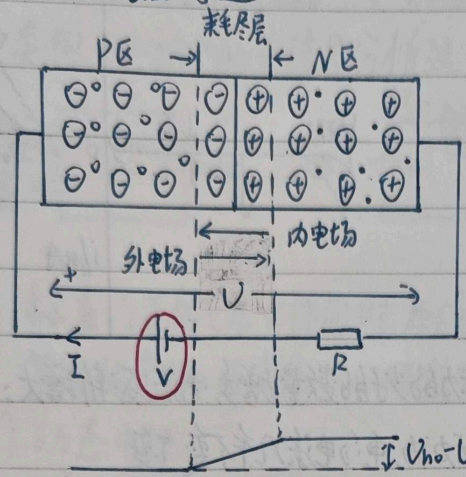 耗尽层
P区 N区
内电场
外电场
+ U -
I V R
Uho-U